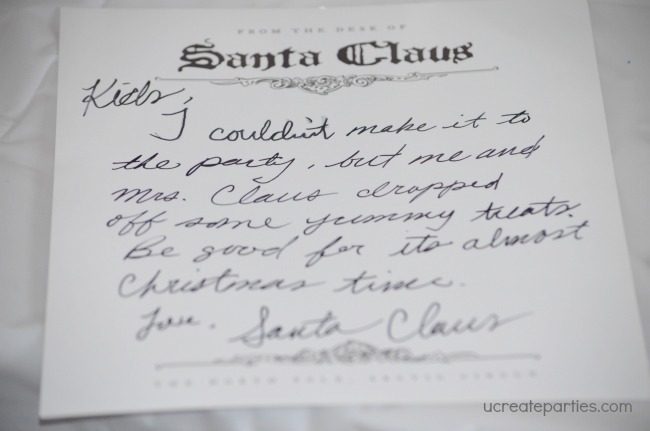 FROM THE DESK OF
Santa Claus
Kids,
I couldn't make it to
the party, but me and
Mrs. Claus dropped
off some yummy treats.
Be good for its almost
Christmas time.
Love, Santa Claus
THE NORTH POLE, ARCTIC CIRCLE
ucreateparties.com